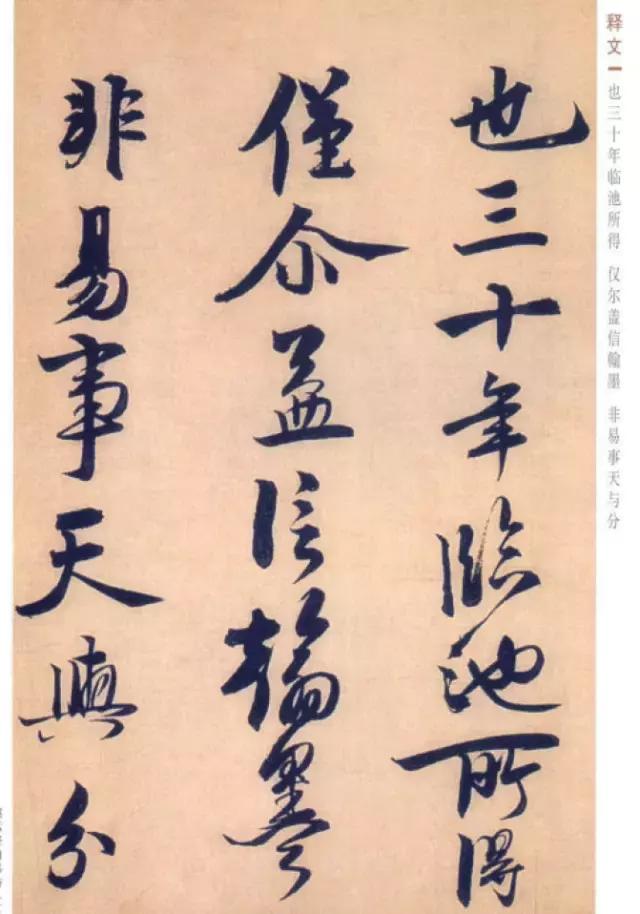 释文一 也三十年临池所得 仅尔盖信翰墨 非易事天与分
世三十年臨池所得
僅尒益信翰墨
非易事天與分